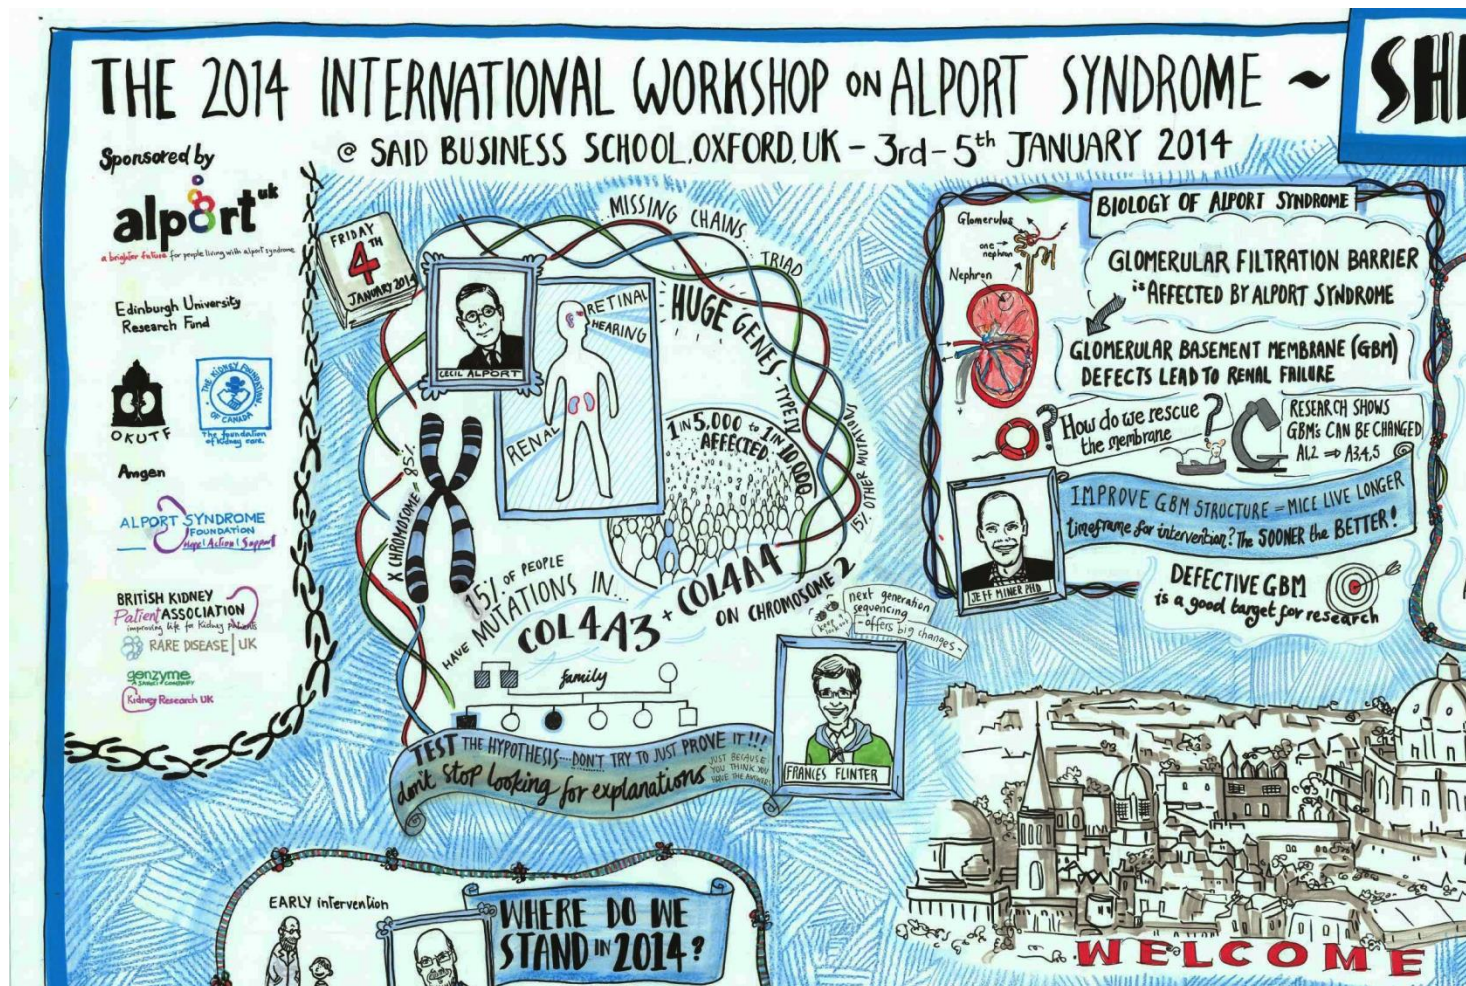 THE 2014 INTERNATIONAL WORKSHOP ON ALPORT SYNDROME ~
@ SAID BUSINESS SCHOOL, OXFORD, UK - 3rd - 5th JANUARY 2014
Sponsored by
alport uk
a brighter future for people living with alport syndrome
Edinburgh University
Research Fund
OKUTF
THE KIDNEY FOUNDATION
OF CANADA
The foundation
of kidney care.
Amgen
ALPORT SYNDROME
FOUNDATION
Hope | Action | Support
BRITISH KIDNEY
Patient ASSOCIATION
improving life for kidney patients
RARE DISEASE | UK
genzyme
A SANOFI COMPANY
Kidney Research UK
FRIDAY
4TH
JANUARY 2014
CECIL ALPORT
RETINAL
HEARING
RENAL
...MISSING CHAINS...
TRIAD
HUGE GENES - TYPE IV
1 IN 5,000 to 1 IN 10,000
AFFECTED
15% OTHER MUTATIONS
X CHROMOSOME = 85%
15% OF PEOPLE
HAVE MUTATIONS IN...
COL4A3 + COL4A4
ON CHROMOSOME 2
keep
look out
next generation
sequencing
- offers big changes -
family
TEST THE HYPOTHESIS....DON'T TRY TO JUST PROVE IT!!!
don't stop looking for explanations
JUST BECAUSE
YOU THINK YOU
HAVE THE ANSWER
FRANCES FLINTER
BIOLOGY OF ALPORT SYNDROME
Glomerulus
one
nephron
Nephron
GLOMERULAR FILTRATION BARRIER
is AFFECTED BY ALPORT SYNDROME
GLOMERULAR BASEMENT MEMBRANE (GBM)
DEFECTS LEAD TO RENAL FAILURE
? How do we rescue ?
the membrane
RESEARCH SHOWS
GBM's CAN BE CHANGED
A1,2 ⇒ A3,4,5
IMPROVE GBM STRUCTURE = MICE LIVE LONGER
timeframe for intervention? The SOONER the BETTER!
JEFF MINER PHD
DEFECTIVE GBM
is a good target for research
EARLY intervention
WHERE DO WE
STAND IN 2014?
WELCOME